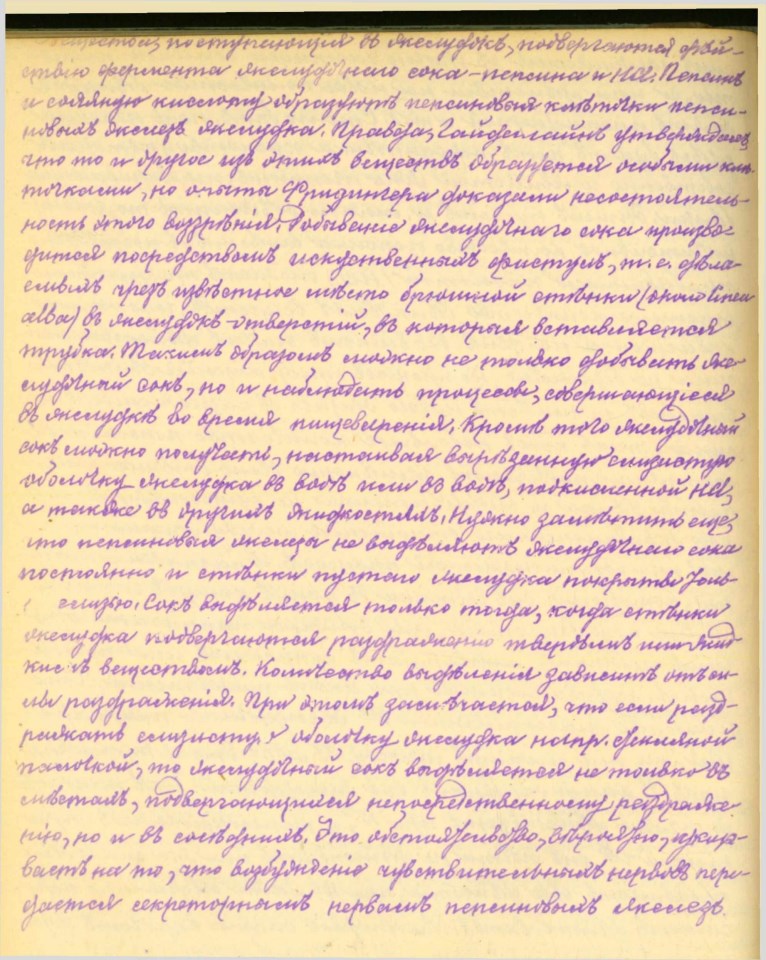 поступающія въ желудокъ, подвергаются дѣй-
ствію фермента желудочнаго сока - пепсина и HCl. Пепсинъ
и соляную кислоту образуютъ пепсиновыя клѣточки пепси-
новыхъ железъ желудка. Правда, Гайденгайнъ утверждалъ,
что то и другое изъ этихъ веществъ образуется особыми клѣ-
точками, но опыты Фридингера доказали несостоятель-
ность этого воззрѣнія. Добываніе желудочнаго сока произво-
дится посредствомъ искусственныхъ фистулъ, т. е. дѣла-
емыхъ чрезъ извѣстное мѣсто брюшной стѣнки (около linea
alba) въ желудокъ отверстій, въ которыя вставляется
трубка. Такимъ образомъ можно не только добывать же-
лудочный сокъ, но и наблюдать процессы, совершающіеся
въ желудкѣ во время пищеваренія. Кромѣ того желудочный
сокъ можно получать, настаивая вырѣзанную слизистую
оболочку желудка въ водѣ или въ водѣ, подкисленной HCl,
а также въ другихъ жидкостяхъ. Нужно замѣтить еще,
что пепсиновыя железы не выдѣляютъ желудочнаго сока
постоянно и стѣнки пустого желудка покрыты
слизью. Сокъ выдѣляется только тогда, когда стѣнки
желудка подвергаются раздраженію твердымъ или жид-
кимъ веществомъ. Количество выдѣленія зависитъ отъ си-
лы раздраженія. При этомъ замѣчается, что если разд-
ражать слизистую оболочку желудка напр. стеклянной
палочкой, то желудочный сокъ выдѣляется не только въ
мѣстахъ, подвергающихся непосредственному раздраже-
нію, но и въ сосѣднихъ. Это обстоятельство, вѣроятно, указы-
ваетъ на то, что возбужденіе чувствительныхъ нервовъ пере-
дается секреторнымъ нервамъ пепсиновыхъ железъ.